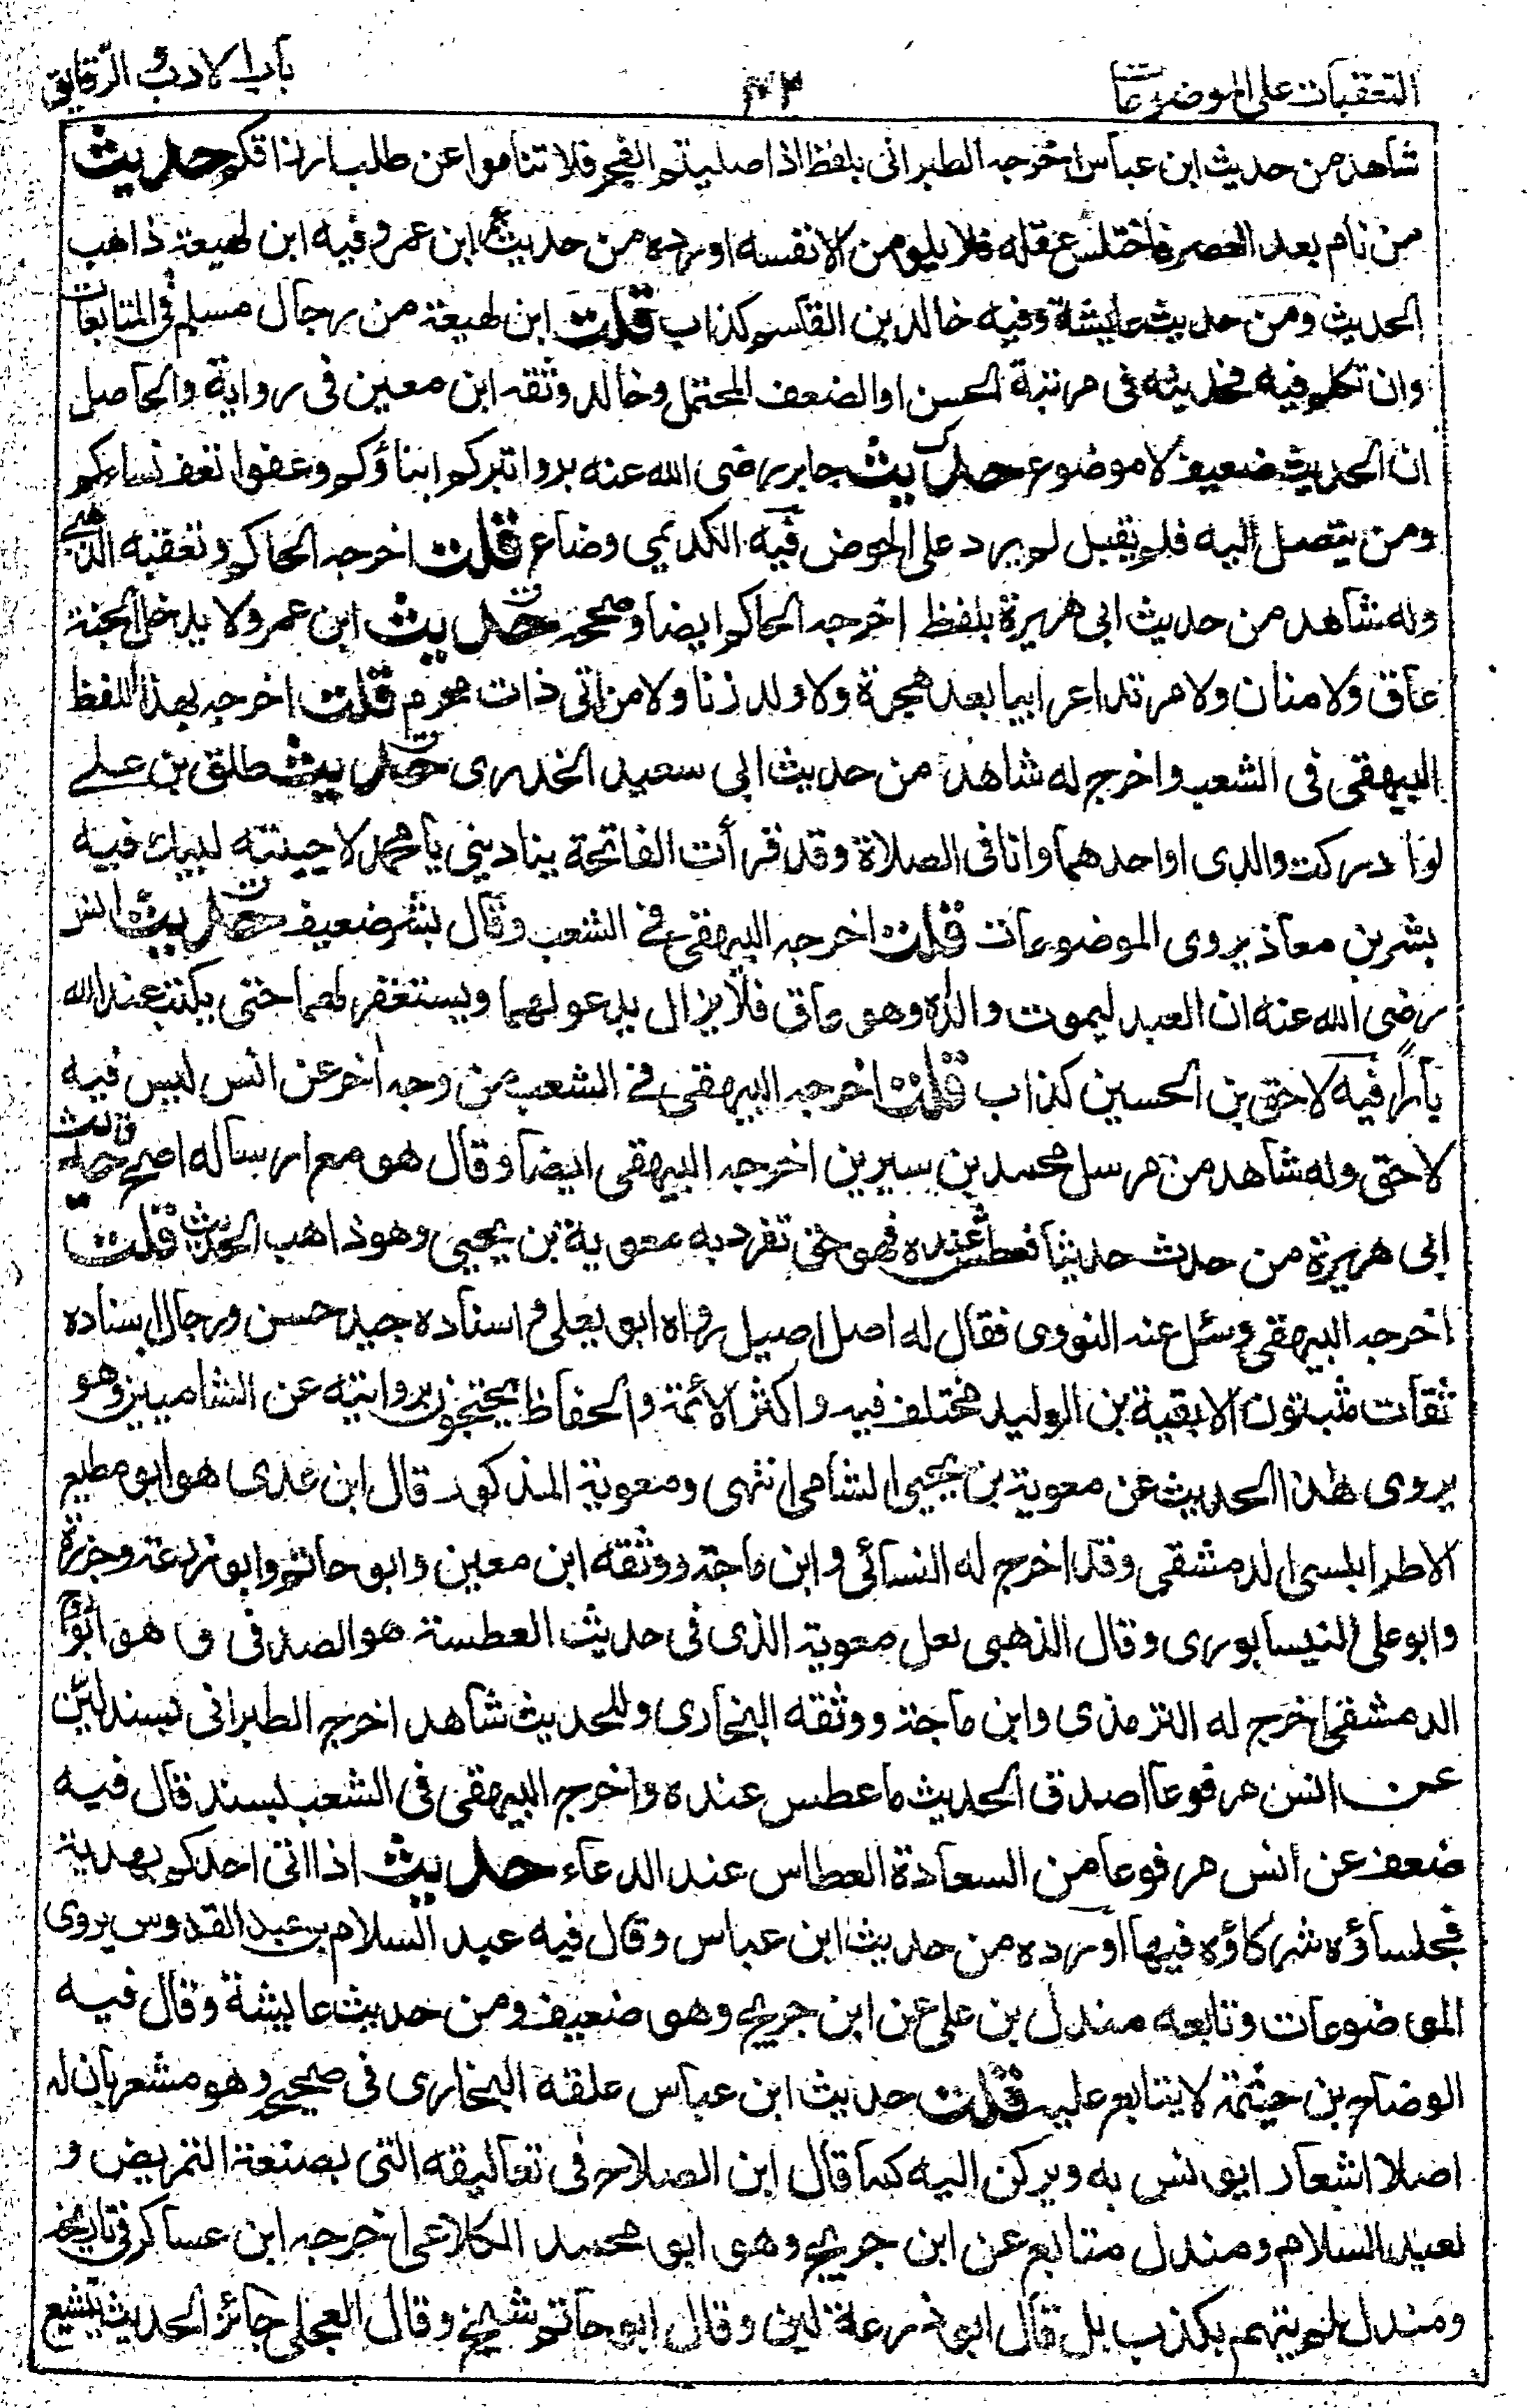 التعقبات على الموضوعات
باب الادب والرقايق
شاهد من حديث ابن عباس اخرجه الطبرانى بلفظ اذا صليتم الفجر فلا تناموا عن طلب ارزاقكم حديث
من نام بعد العصر فاختلس عقله فلا يلومن الا نفسه اورده من حديث ابن عمر وفيه ابن لهيعة ذاهب
الحديث ومن حديث عايشة وفيه خالد بن القاسم كذاب قلت ابن لهيعة من رجال مسلم فى المتابعات
وان تكلم فيه فحديثه فى مرتبة الحسن او الضعف المحتمل وخالد وثقه ابن معين فى رواية والحاصل
ان الحديث ضعيف لا موضوع حديث جابر رضى الله عنه بروا تبركم ابناؤكم وعفوا تعف نساءكم
ومن يتصل اليه فلم يقبل لم يرد على الحوض فيه الكديمي وضاع قلت اخرجه الحاكم وتعقبه الذهبي
وله شاهد من حديث ابى هريرة بلفظ اخرجه الحاكم ايضا وصححه حديث ابن عمرو لا يدخل الجنة
عاق ولا منان ولا مرتد اعرابيا بعد هجرة ولا ولد زنا ولا من اتى ذات محرم قلت اخرجه بهذا اللفظ
البيهقى فى الشعب واخرج له شاهد من حديث ابى سعيد الخدرى حديث طلق بن على
لو ادركت والدى او احدهما وانا فى الصلاة وقد قرأت الفاتحة ينادينى يا محمد لاجبته لبيك فيه
بشر بن معاذ يروى الموضوعات قلت اخرجه البيهقى فى الشعب وقال بشر ضعيف حديث انس
رضى الله عنه ان العبد ليموت والداه وهو عاق فلا يزال يدعو لهما ويستغفر لهما حتى يكتب عند الله
بارا فيه لاحق بن الحسين كذاب قلت اخرجه البيهقى فى الشعب من وجه اخر عن انس ليس فيه
لاحق وله شاهد من مرسل محمد بن سيرين اخرجه البيهقى ايضا وقال هو مع ارساله اصح حديث
ابى هريرة من حدث حديثا فعطس عنده فهو حق تفرد به معوية بن يحيى وهو ذاهب الحديث قلت
اخرجه البيهقى وسئل عنه النووى فقال له اصل اصيل رواه ابو يعلى واسناده جيد حسن ورجال اسناده
ثقات مثبتون الا بقية بن الوليد مختلف فيه واكثر الأئمة والحفاظ يحتجون بروايته عن الشاميين وهو
يروى هذا الحديث عن معوية بن يحيى الشامى انتهى ومعوية المذكور قال ابن عدى هو ابو مطيع
الاطرابلسى الدمشقى وقد اخرج له النسائى و ابن ماجة ووثقه ابن معين وابو حاتم وابو زرعة وجزرة
وابو على النيسابورى وقال الذهبى لعل معوية الذى فى حديث العطسة هو الصدفى و هو ابو روح
الدمشقى اخرج له الترمذى وابن ماجة ووثقه البخارى وللحديث شاهد اخرجه الطبرانى بسند لين
عن انس مرفوعا اصدق الحديث ما عطس عنده واخرجه البيهقى فى الشعب بسند قال فيه
ضعف عن انس مرفوعا من السعادة العطاس عند الدعاء حديث اذا اتى احدكم بهدية
فجلساؤه شركاؤه فيها اورده من حديث ابن عباس وقال فيه عبد السلام بن عبد القدوس يروى
الموضوعات وتابعه مندل بن على عن ابن جريج وهو ضعيف ومن حديث عايشة وقال فيه
الوضاح بن خيثمة لا يتابع عليه قلت حديث ابن عباس علقه البخارى فى صحيحه وهو مشعر بان له
اصلا اشعار ايونس به ويركن اليه كما قال ابن الصلاح فى تعاليقه التى بصنعة التمريض و
لعبد السلام ومندل متابع عن ابن جريج وهو ابو محمد الكلاعى اخرجه ابن عساكر فى تاريخه
ومندل لم يتهم بكذب بل قال ابو زرعة لين وقال ابو حاتم شيخ وقال العجلى جائز الحديث يتشيع